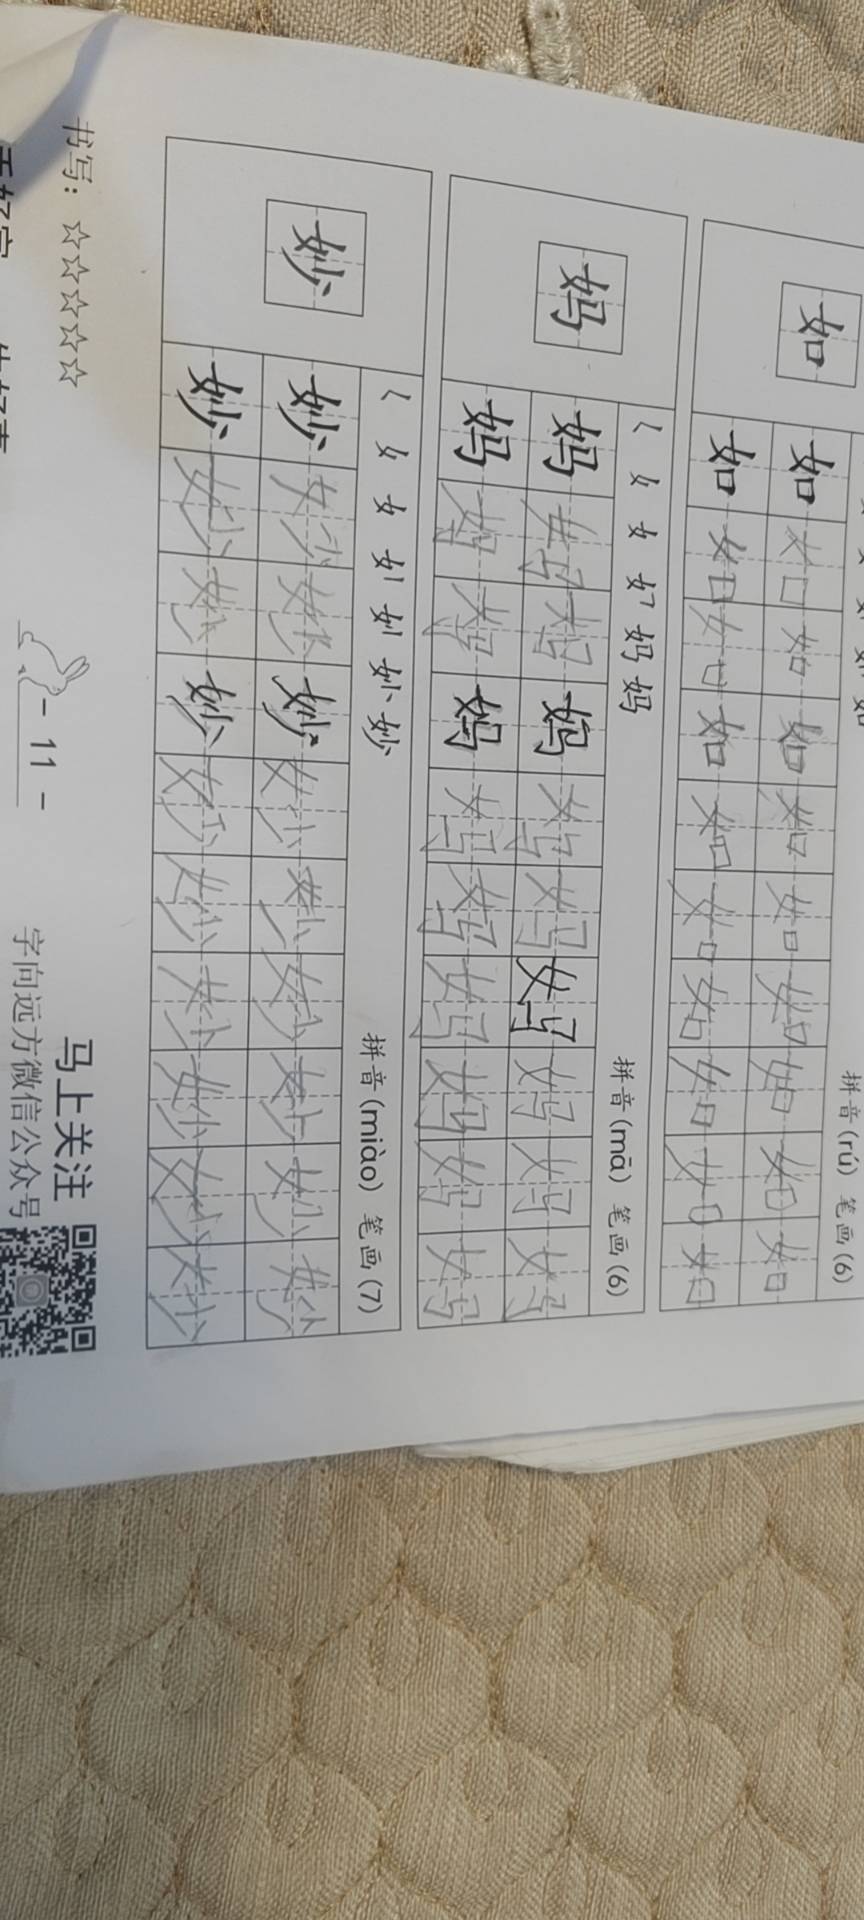 拼音(rú) 笔画(6)
如
如如如如如如如如如如
如如如如如如如如如如
女 妈 妈 拼音(mā) 笔画(6)
妈
妈妈妈妈妈妈妈妈妈妈
妈妈妈妈妈妈妈妈妈妈
女 妙 拼音(miào) 笔画(7)
妙
妙妙妙妙妙妙妙妙妙妙
妙妙妙妙妙妙妙妙妙妙
书写：☆☆☆☆☆ - 11 - 马上关注
字向远方微信公众号